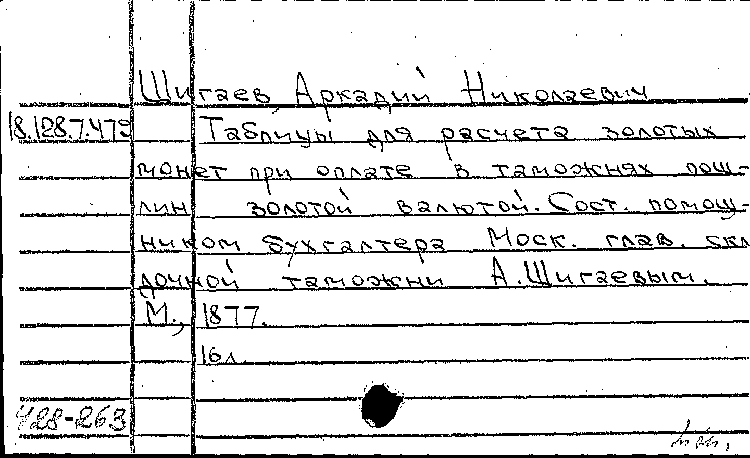 Шигаев Аркадий Николаевич
18.128.7.479
Таблицы для расчета золотых
монет при оплате в таможнях пош-
лин золотой валютой. Сост. помощ-
ником бухгалтера Моск. глав. скл
дочной таможни А.Шигаевым.
М., 1877.
16л.
428-263